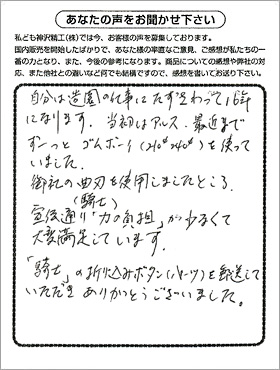 あなたの声をお聞かせ下さい
私ども神沢精工(株)では今、お客様の声を募集しております。
国内販売を開始したばかりで、あなた様の率直なご意見、ご感想が私たちの一
番の力となり、また、今後の参考になります。商品についての感想や弊社の対
応、また他社との違いなど何でも結構ですので、感想を書いてお送り下さい。
自分は造園の仕事にたずさわって16年
になります。当初はアルス、最近まで
ずーっとゴムボーイ(210㎜240㎜)を使って
いました。
御社の曲刃を使用しましたところ、
(騎士)
宣伝通り「力の負担」が少なくて
大変満足しています。
「騎士」の折り込みボタン(パーツ)を郵送して
いただき ありがとうございました。